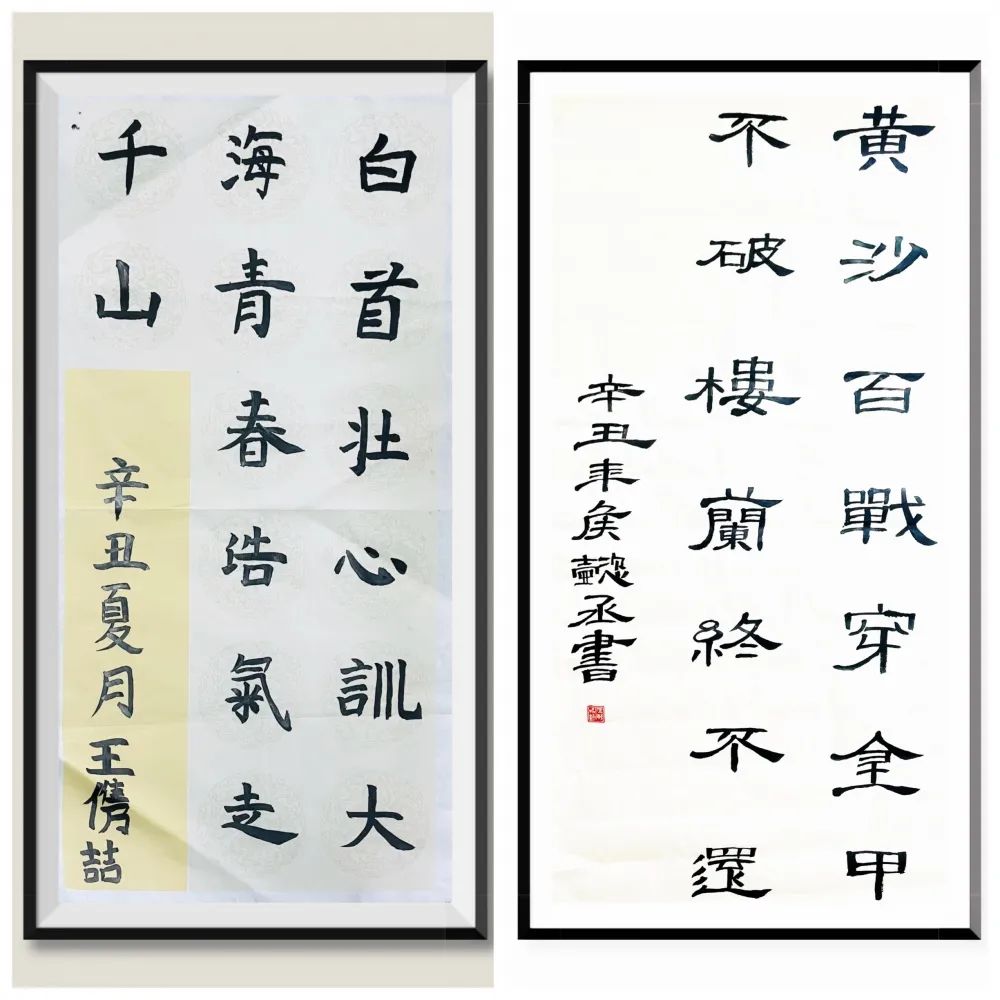 白首壮心訓大
海青春浩氣走
千山
辛丑夏月王儁喆
黄沙百戰穿金甲
不破樓蘭終不還
辛丑年侯懿丞書